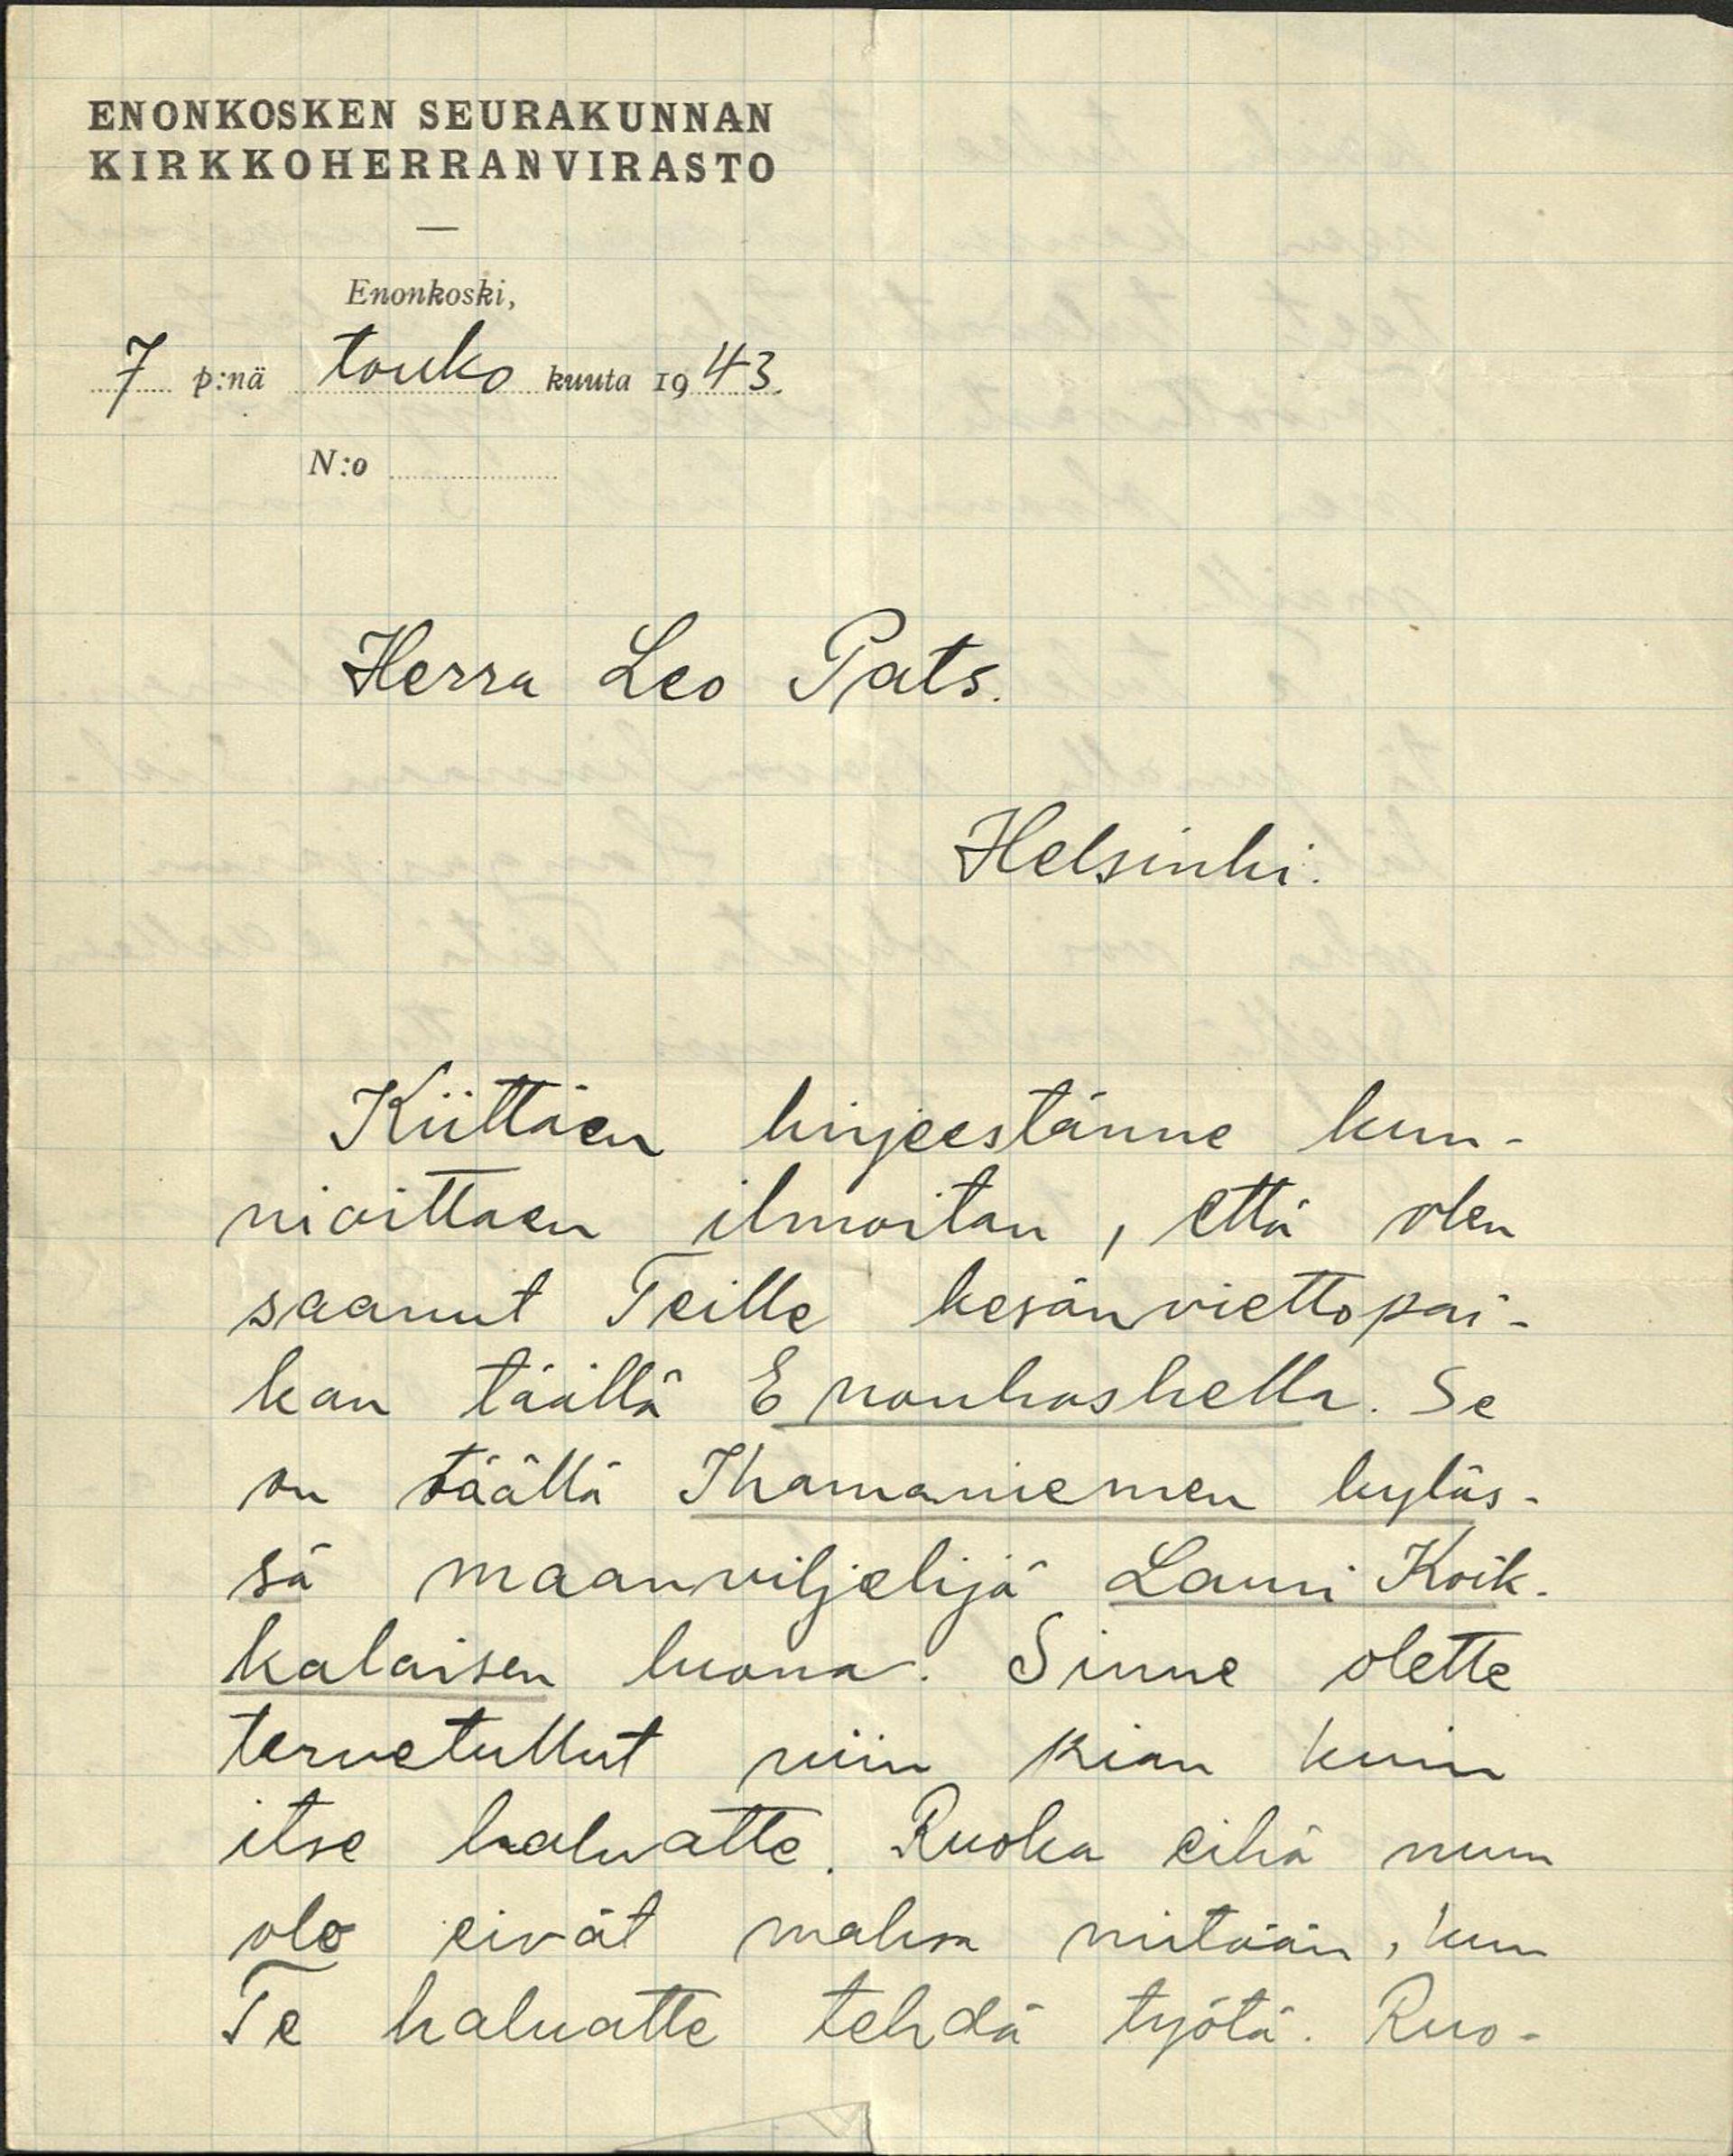 ENONKOSKEN SEURAKUNNAN
KIRKKOHERRANVIRASTO
Enonkoski,
7 p:nä touko kuuta 1943.
N:o
Herra Leo Pats.
Helsinki.
Kiittäen kirjeestänne kun-
nioittaen ilmoitan, että olen
saanut Teille kesänviettopai-
kan täällä Enonkoskella. Se
on täällä Ihamaniemen kyläs-
sä maanviljelijä Lauri Koik-
kalaisen luona. Sinne olette
tervetullut niin pian kuin
itse haluatte. Ruoka eikä muu
olo eivät maksa mitään, kun
Te haluatte tehdä työtä. Ruo-